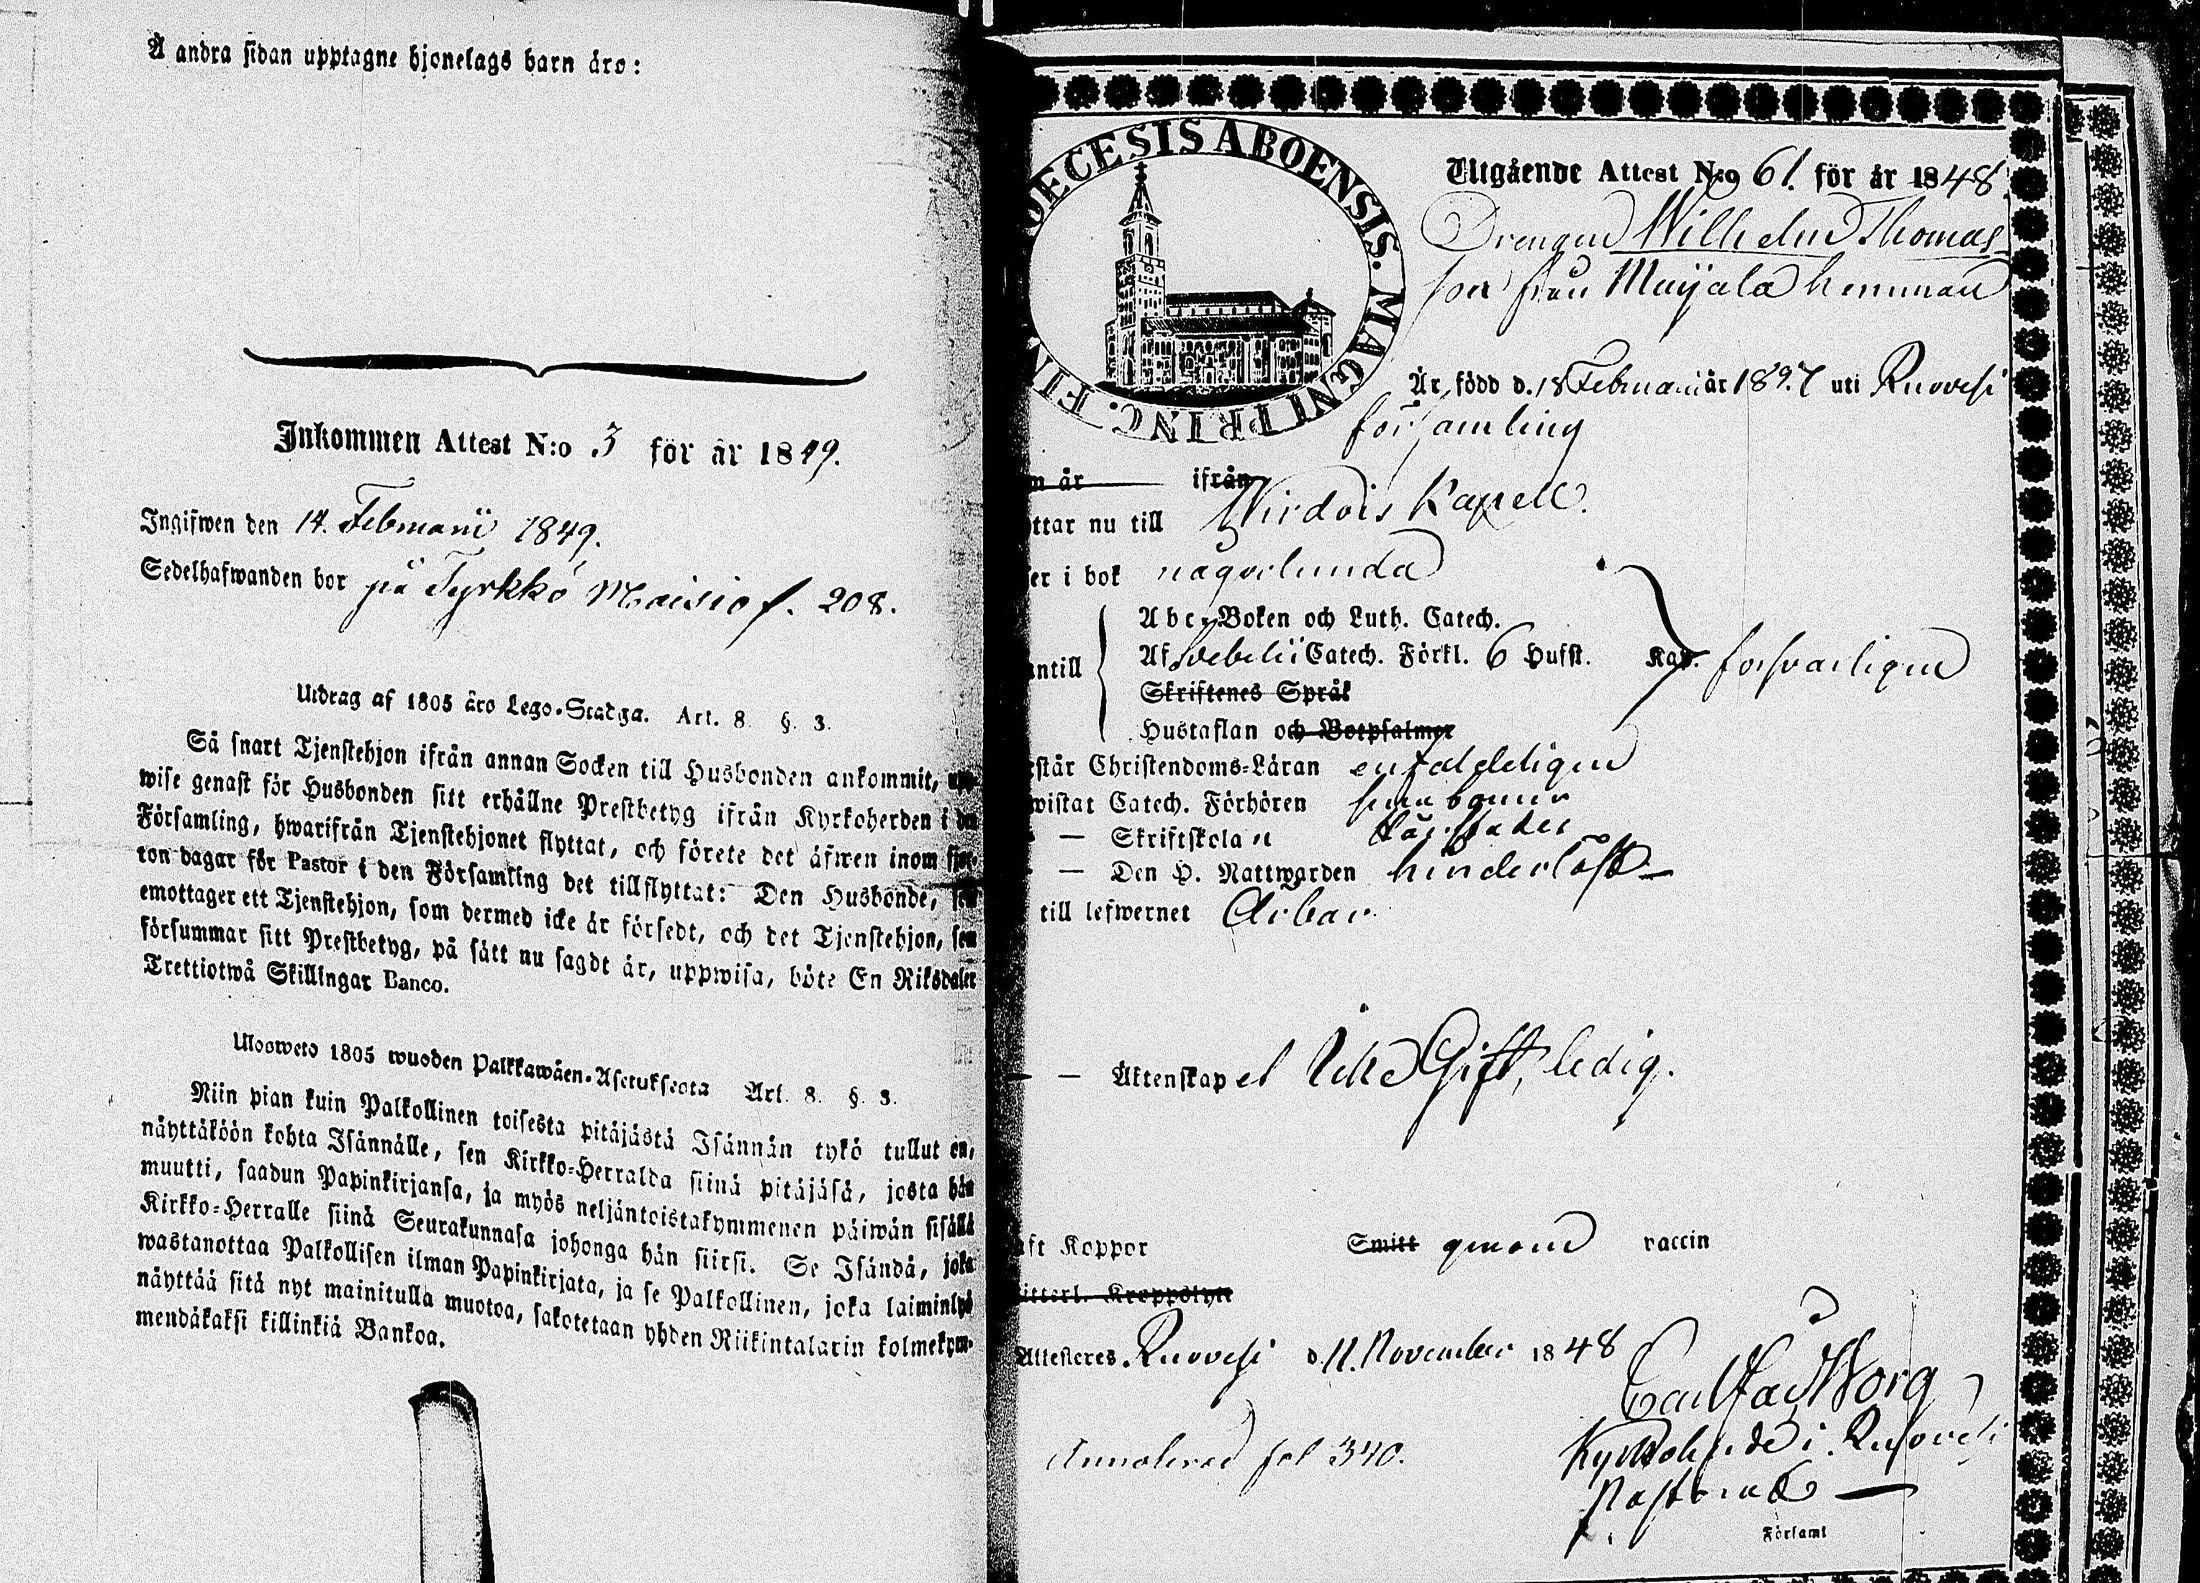 Å andra sidan upptagne hjonelags barn äro:
Inkommen Attest N:o 3 för år 1849.
Ingifwen den 14. Februarii 1849.
Sedelhafwanden bor på Tyrkkö Maisio f. 208.
Utdrag af 1805 års Lego-Stadga. Art. 8. §. 3.
Så snart Tjenstehjon ifrån annan Socken till Husbonden ankommit, upp-
wise genast för Husbonden sitt erhållne Prestbetyg ifrån Kyrkoherden i den
Församling, hwarifrån Tjenstehjonet flyttat, och förete det äfwen inom fjor-
ton dagar för Pastor i den Församling det tillflyttat: Den Husbonde, som
emottager ett Tjenstehjon, som dermed icke är försedt, och det Tjenstehjon, som
försummar sitt Prestbetyg, på sätt nu sagdt är, uppwisa, böte En Riksdaler
Trettiotwå Skillingar Banco.
Ulosweto 1805 wuoden Palkkawäen-Asetuksesta Art. 8. §. 3.
Niin pian kuin Palkollinen toisesta pitäjästä Isännän tykö tullut on,
näyttäköön kohta Isännälle, sen Kirkko-Herralda siinä pitäjäsä, josta hän
muutti, saadun Papinkirjansa, ja myös neljäntoistakymmenen päiwän sisällä
Kirkko-Herralle siinä Seurakunnasa johonga hän siirsi. Se Isändä, joka
wastanottaa Palkollisen ilman Papinkirjata, ja se Palkollinen, joka laiminlyö
näyttää sitä nyt mainitulla muotoa, sakotetaan yhden Riikintalarin kolmekym-
mendäkaksi killinkiä Bankoa.
OECESIS ABOENSIS. MAGNI PRINC. FIN
Utgående Attest N:o 61. för år 1848.
Drengen Wilhelm Thomas
son från Maijala hemman
Är född d. 18 Februarii år 1827 uti Ruovesi
församling
n år ifrån
ttar nu till Wirdois Kapell.
er i bok någorlunda
antill
Abc-Boken och Luth. Catech.
Af Svebelii Catech. Förkl. 6 Hufst. Kap. försvarligen
Skriftenes Språk
Hustaflan och Botpsalmer
rstår Christendoms-Läran enfaldeligen
wistat Catech. Förhören
— Skriftskolan
— Den H. Nattwarden hinderlöst
till lefwernet Ärbar.
— Äktenskapet Icke Gift, ledig.
aft Koppor Smitt genom vaccin
itterl. Kroppslyte
Attesteres Ruovesi d 11. November 1848
Carl Wörg
Kyrkoherde i Ruovesi
Pastorat
Annoterad fol 340.
Församl